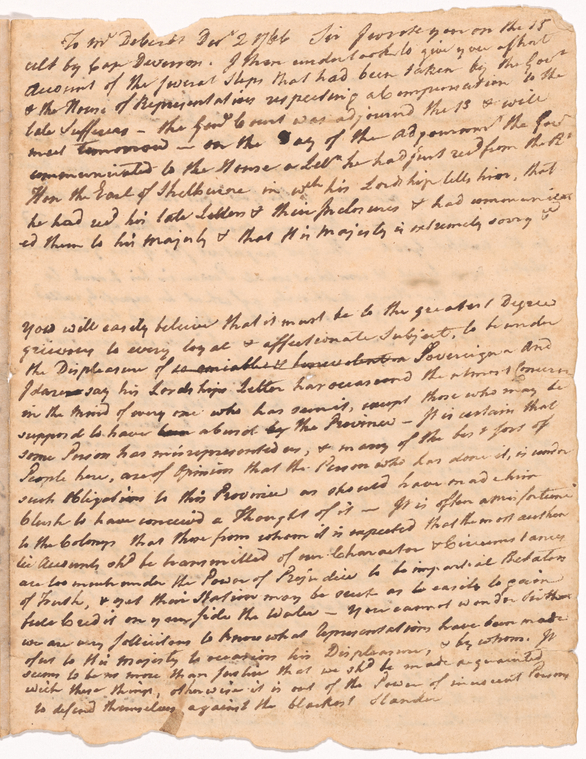 To Mr Deberdt Decr 2 1766 Sir I wrote you on the 15
ult by Cap Deverson. I then undertook to give you a short
Account of the several Steps that had been taken by the Govr
& the House of Representatives respecting a Compensation to the
late Sufferers – the Genl Court was adjournd the 13 & will
meet tomorrow – on the Day of the Adjournmt the Govr
communicated to the House a Lettr he had just recd from the Rt
Hon the Earl of Shelburne in wch his Lordship tells him, that
he had recd his late Letters & their Inclosures & had communicat
ed them to his Majesty & that His Majesty is extremely sorry &c
You will easily believe that it must be to the greatest Degree
grievous to every loyal & affectionate Subject, to be under
the Displeasure of so amiable & benevolent a Sovereign And
I dare say his Lordships Letter has occasiond the utmost Concern
in the mind of every one who has seen it, except those who may be
supposd to have abusd the Province – It is certain that
some Person has misrepresented us, & many of the best sort of
People here, are of Opinion that the Person who has done it, is under
such Obligations to this Province as should have made him
blush to have conceived a Thought of it – It is often a misfortune
to the Colonys that those from whom it is expected that the most authen
tic Accounts shd be transmitted of our Character & Circumstances
are too much under the Power of Prejudice to be impartial Relators
of Truth, & yet their Station may be such as to easily to gain
full Credit on your side the Water – You cannot wonder Sir that
we are very sollicitous to know what representations have been made
of us to His Majesty to occasion his Displeasure, & by whom. It
seems to be no more than Justice that we shd be made acquainted
with these things, otherwise it is out of the Power of innocent Persons
to defend themselves against the blackest Slander